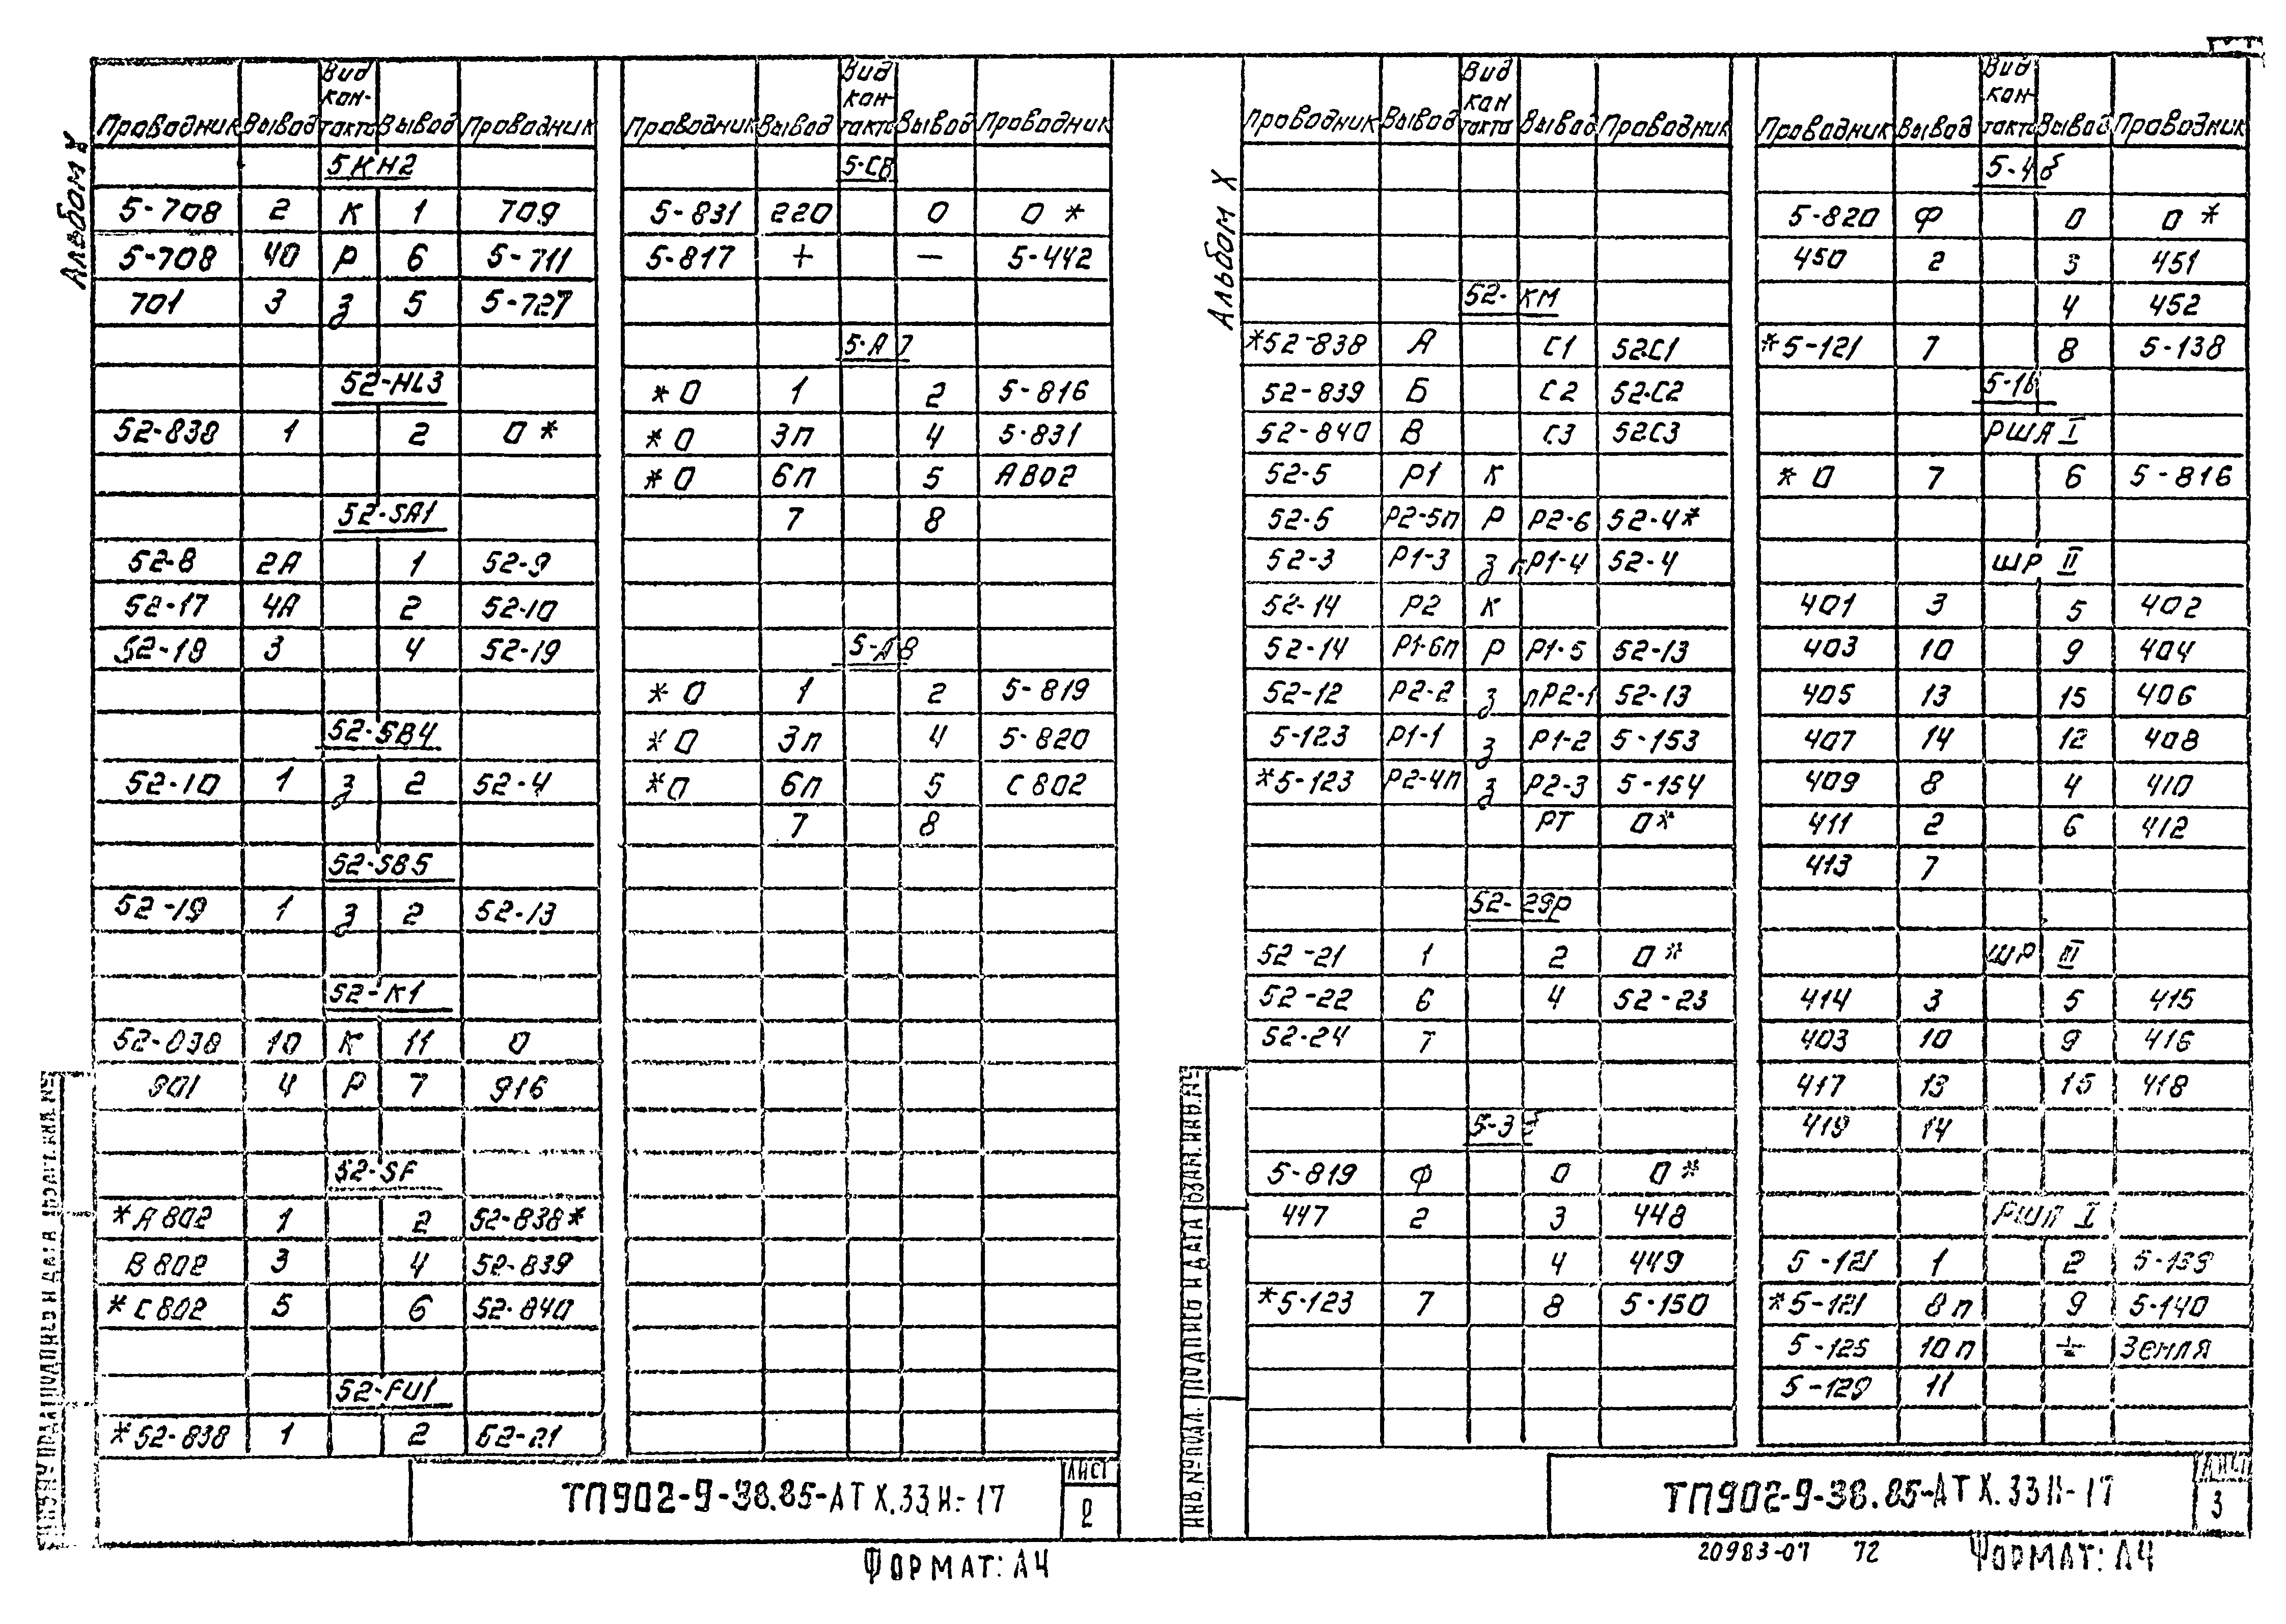 Альбом X
Проводник Вывод Вид кон-такта Вывод Проводник
5КН2
5-708 2 К 1 709
5-708 40 Р 6 5-711
701 3 З 5 5-727
52-HL3
52-838 1 2 0*
52-SA1
52-8 2А 1 52-9
52-17 4А 2 52-10
52-18 3 4 52-19
52-SB4
52-10 1 З 2 52-4
52-SB5
52-19 1 З 2 52-13
52-К1
52-838 10 К 11 0
901 4 Р 7 916
52-SF
*А802 1 2 52-838*
В802 3 4 52-839
*С802 5 6 52-840
52-FU1
*52-838 1 2 52-21
Проводник Вывод Вид кон-такта Вывод Проводник
5-СВ
5-831 220 0 0*
5-817 + — 5-442
5-А7
*0 1 2 5-816
*0 3п 4 5-831
*0 6п 5 А802
7 8
5-А8
*0 1 2 5-819
*0 3п 4 5-820
*0 6п 5 С802
7 8
ТП902-9-38.85-АТХ.33И-17
Лист
2
Формат: А4
Альбом X
Проводник Вывод Вид кон такта Вывод Проводник
52-КМ
*52-838 А С1 52С1
52-839 Б С2 52-С2
52-840 В С3 52С3
52-5 Р1 К
52-5 Р2-5п Р Р2-6 52-4*
52-3 Р1-3 З пР1-4 52-4
52-14 Р2 К
52-14 Р1-6п Р Р1-5 52-13
52-12 Р2-2 З пР2-1 52-13
5-123 Р1-1 З Р1-2 5-153
*5-123 Р2-4п З Р2-3 5-154
РТ 0*
52-29Р
52-21 1 2 0*
52-22 6 4 52-23
52-24 7
5-3б
5-819 Ф 0 0*
447 2 3 448
4 449
*5-123 7 8 5-150
Проводник Вывод Вид кон-такта Вывод Проводник
5-4б
5-820 Ф 0 0*
450 2 3 451
4 452
*5-121 7 8 5-138
5-1б
РША I
*0 7 6 5-816
ШР II
401 3 5 402
403 10 9 404
405 13 15 406
407 14 12 408
409 8 4 410
411 2 6 412
413 7
ШР III
414 3 5 415
403 10 9 416
417 13 15 418
419 14
РШП I
5-121 1 2 5-139
*5-121 8п 9 5-140
5-125 10п ⏚ Земля
5-129 11
ИНВ.№ПОДЛ. ПОДПИСЬ И ДАТА ВЗАМ.ИНВ.№
ТП902-9-38.85-АТХ.33И-17
Лист
3
20983-07 72
Формат: А4